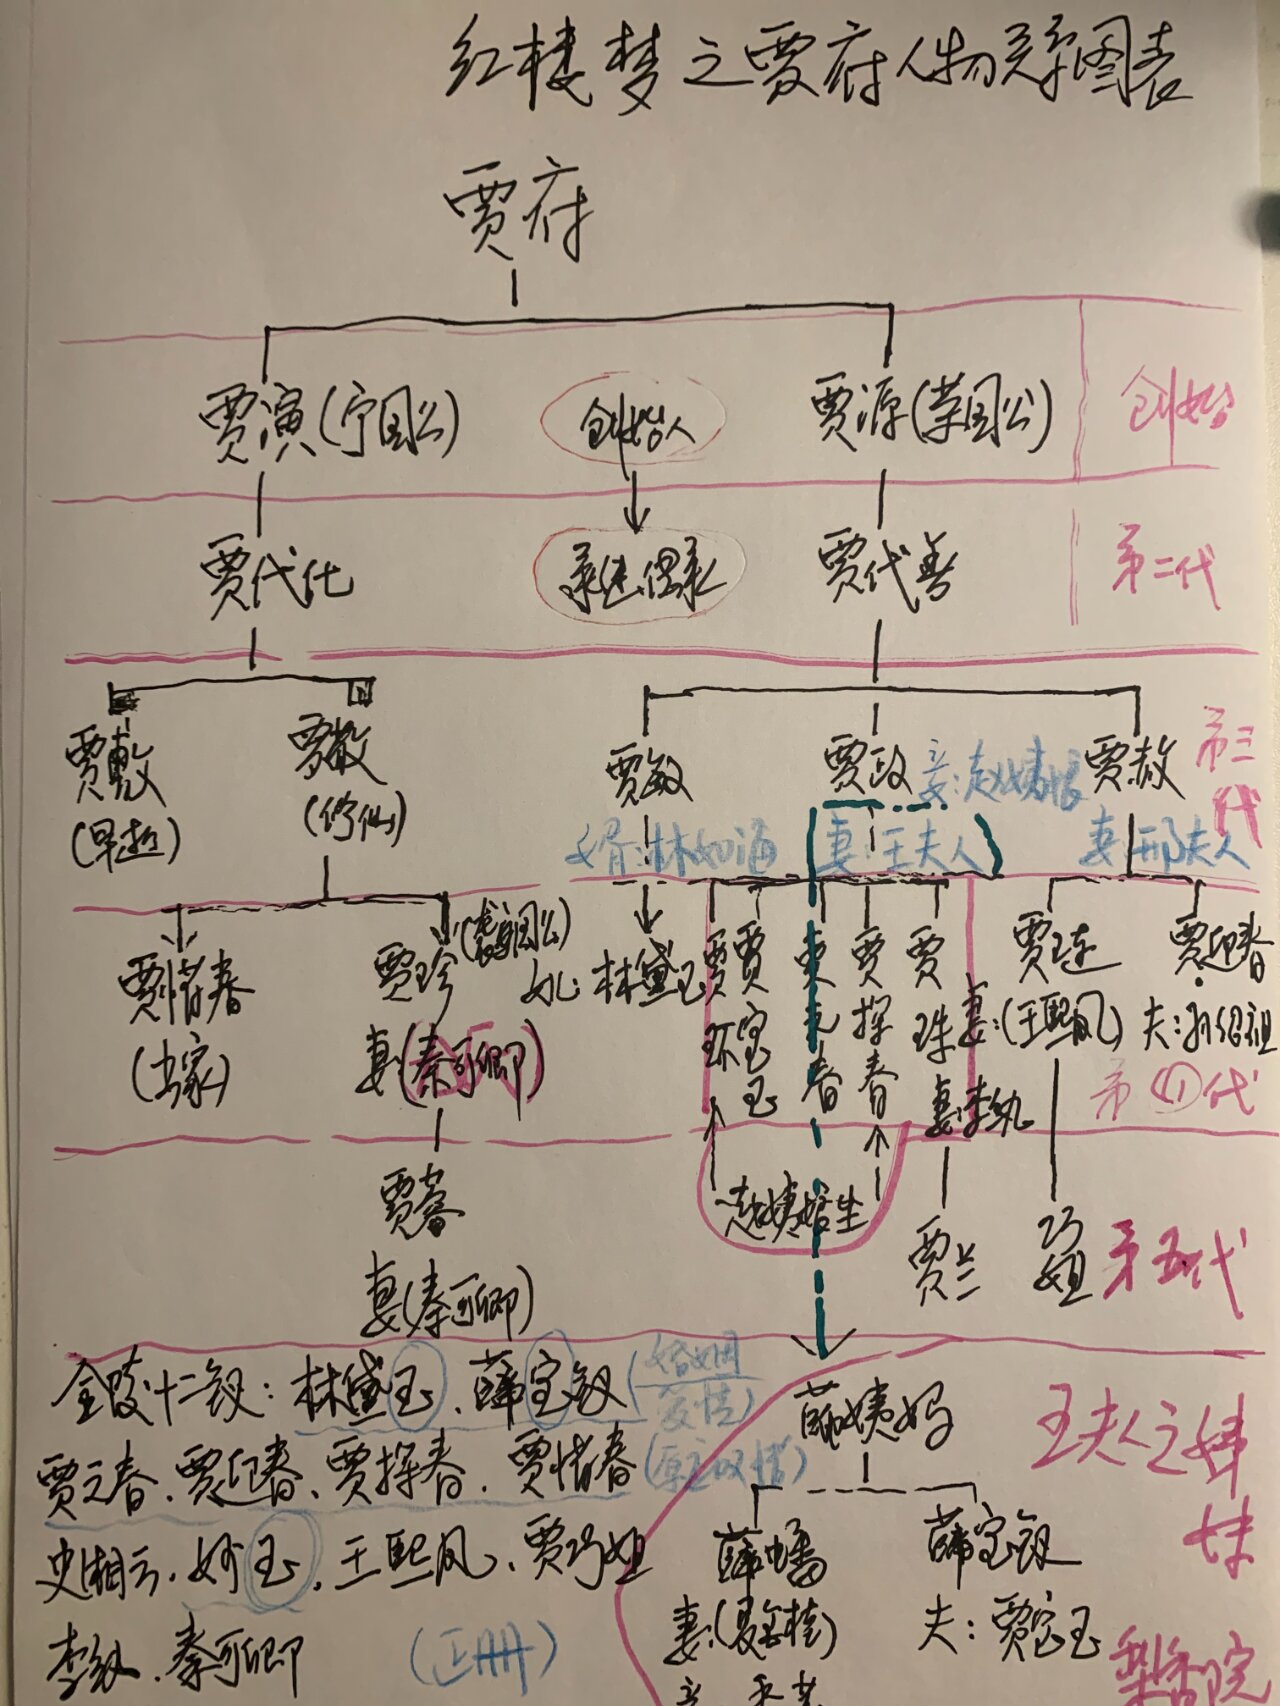 红楼梦之贾府人物关系图表
贾府
贾演(宁国公)
创始人
贾源(荣国公)
创始
贾代化
承进借录
贾代善
第二代
贾敷
(早逝)
贾敬
(修仙)
贾敏
婿:林如海
贾政
妾:赵姨娘
妻:王夫人
贾赦
妻:邢夫人
第三代
贾惜春
(出家)
贾珍
妻:(秦可卿)
女:林黛玉
贾环
贾宝玉
贾元春
贾探春
贾珠
妻:李纨
贾琏
妻:(王熙凤)
贾迎春
夫:孙绍祖
第四代
贾蓉
妻(秦可卿)
赵姨娘生
贾兰
巧姐
第五代
金陵十二钗:林黛玉、薛宝钗
(婚姻
爱情)
贾元春、贾迎春、贾探春、贾惜春
(原应叹惜)
史湘云、妙玉、王熙凤、贾巧姐
李纨、秦可卿
(正册)
薛姨妈
王夫人之姊妹
薛蟠
妻:(夏金桂)
薛宝钗
夫:贾宝玉
梨香院